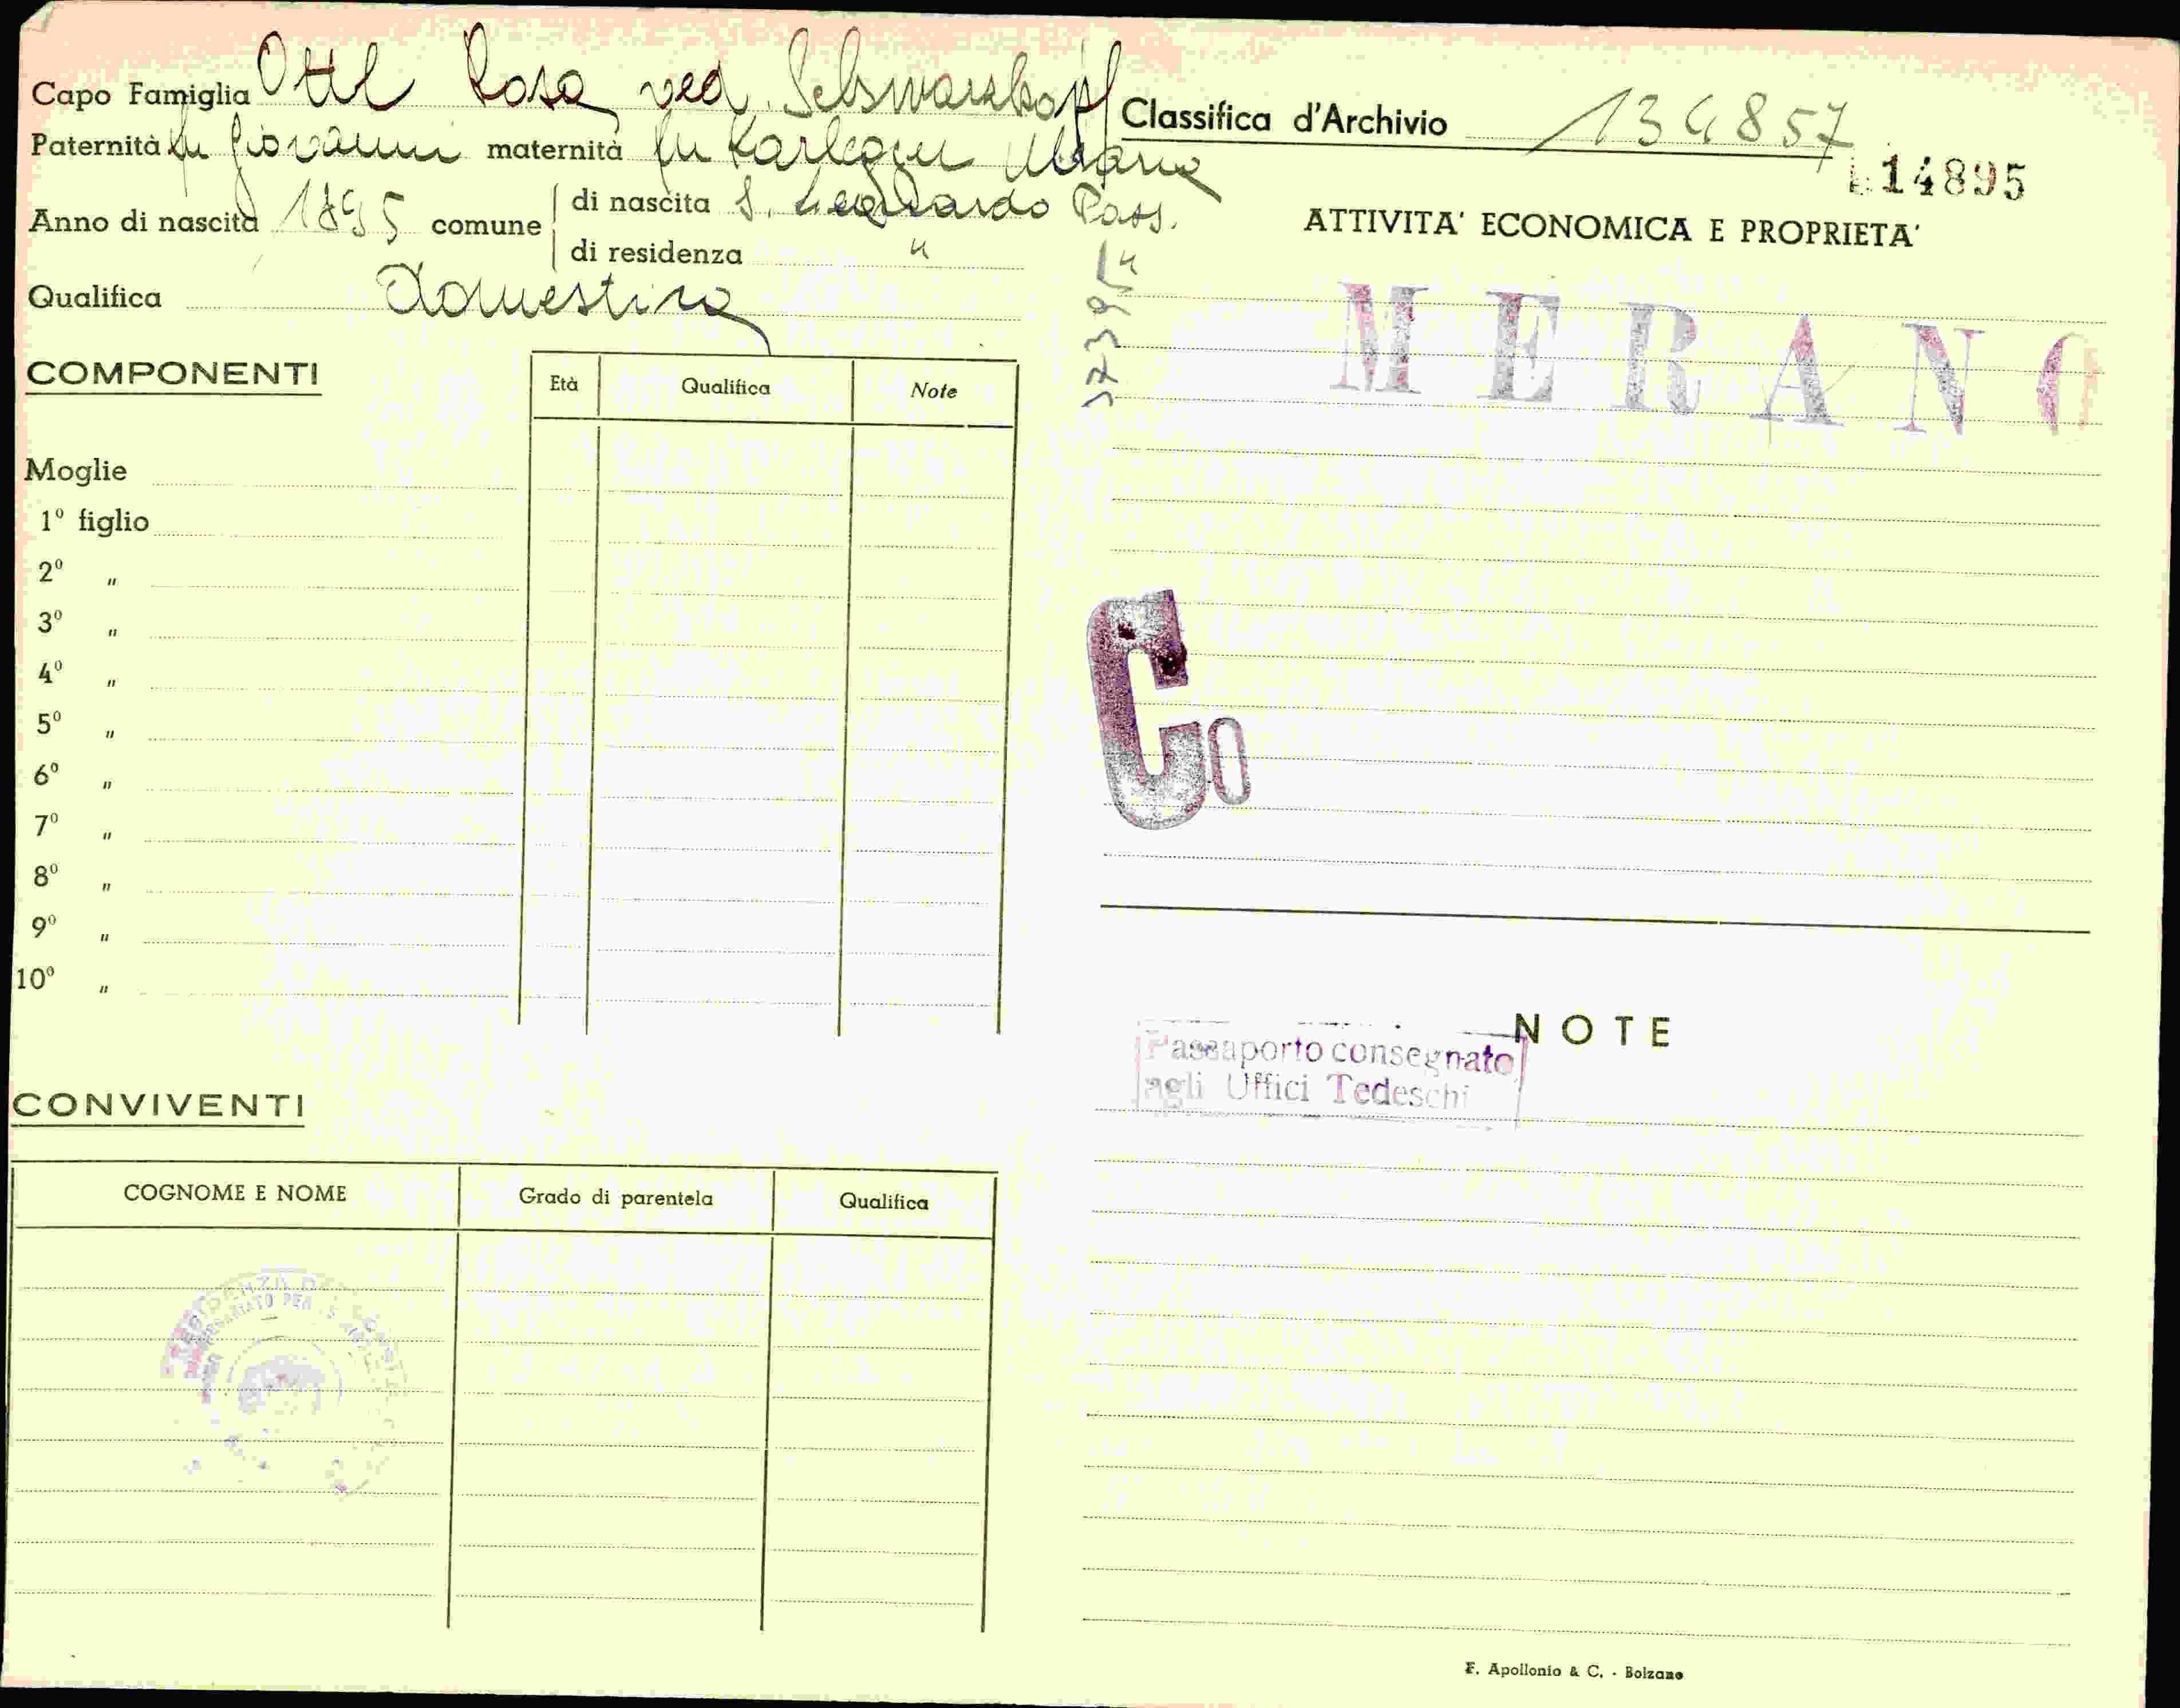 Capo Famiglia Ottl Rosa ved. Schwarzkopf
Paternità fu Giovanni maternità fu Karlegger Maria
Anno di nascita 1895 comune di nascita S. Leonardo Pass.
di residenza "
Qualifica domestica
COMPONENTI
Età Qualifica Note
Moglie
1º figlio
2º "
3º "
4º "
5º "
6º "
7º "
8º "
9º "
10º "
CONVIVENTI
COGNOME E NOME Grado di parentela Qualifica
Classifica d'Archivio 134857
14895
ATTIVITA' ECONOMICA E PROPRIETA'
MERANO
Co
NOTE
Passaporto consegnato
agli Uffici Tedeschi
F. Apollonio & C. - Bolzano